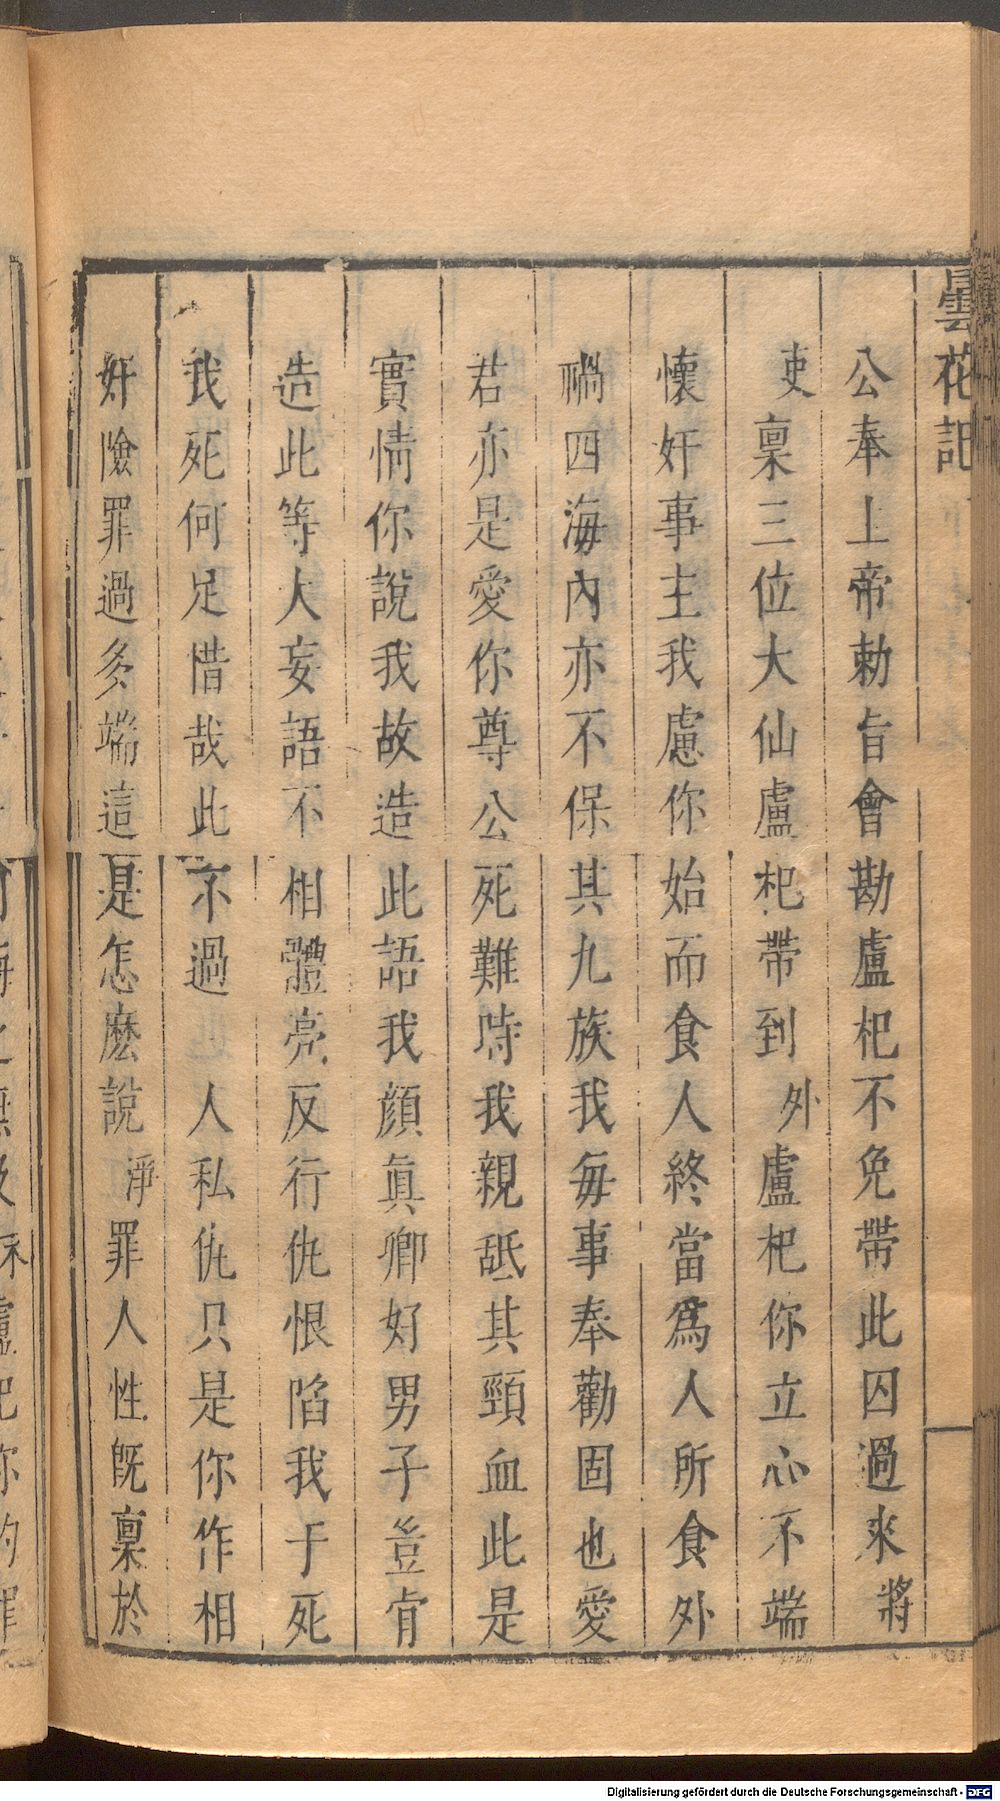 曇花記
公奉上帝勅旨會勘盧杞不免帶此囚過來將
吏稟三位大仙盧杞帶到外盧杞你立心不端
懷奸事主我慮你始而食人終當爲人所食外
禍四海內亦不保其九族我每事奉勸固也愛
君亦是愛你尊公死難時我親舐其頸血此是
實情你說我故造此語我顔眞卿好男子豈肯
造此等大妄語不相體亮反行仇恨陷我于死
我死何足惜哉此不過也人私仇只是你作相
奸險罪過多端這是怎麽說淨罪人性既稟於
Digitalisierung gefördert durch die Deutsche Forschungsgemeinschaft - DFG